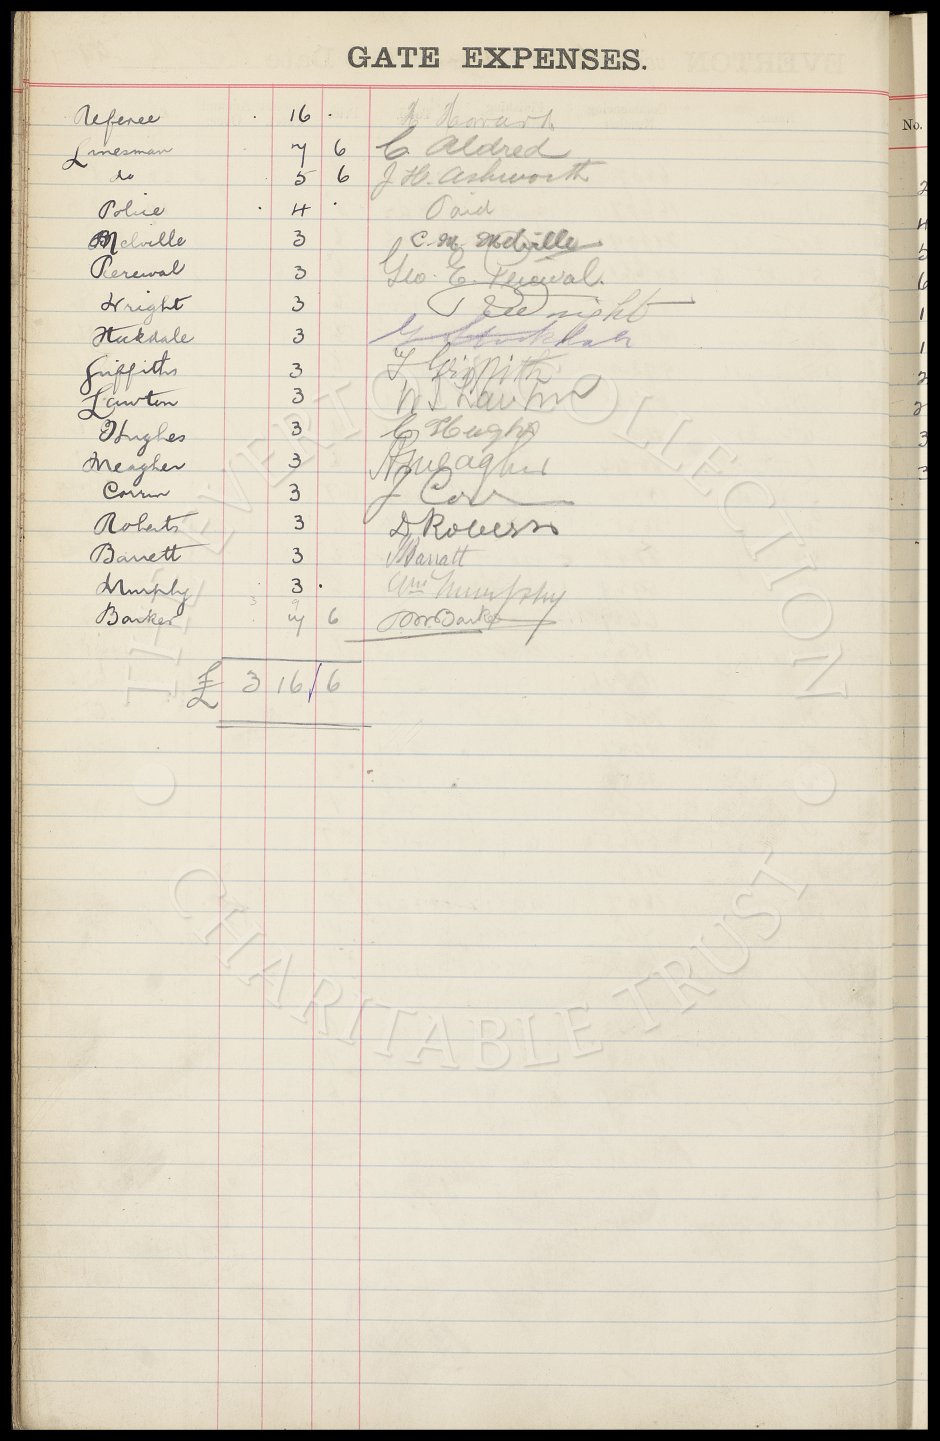 GATE EXPENSES.
Referee . 16 .
Linesman 7 6 C. Aldred
do 5 6 J H. Ashworth
Police . 4 . Paid
Melville 3 C. M. Melville
Percival 3 Geo. E. Percival.
Wright 3 Wright
Stockdale 3 G Stockdale
Griffiths 3 T Griffiths
Lawton 3 Lawton
Hughes 3 C Hughes
Meagher 3 A Meagher
Corrin 3 J Corrin
Roberts 3 D Roberts
Barrett 3 Barratt
Murphy 3 . Wm Murphy
3 9
Barker 7 6 Barker
£ 3 16 / 6
No.
2
4
5
6
1
1
2
2
3
3
THE EVERTON COLLECTION
CHARITABLE TRUST